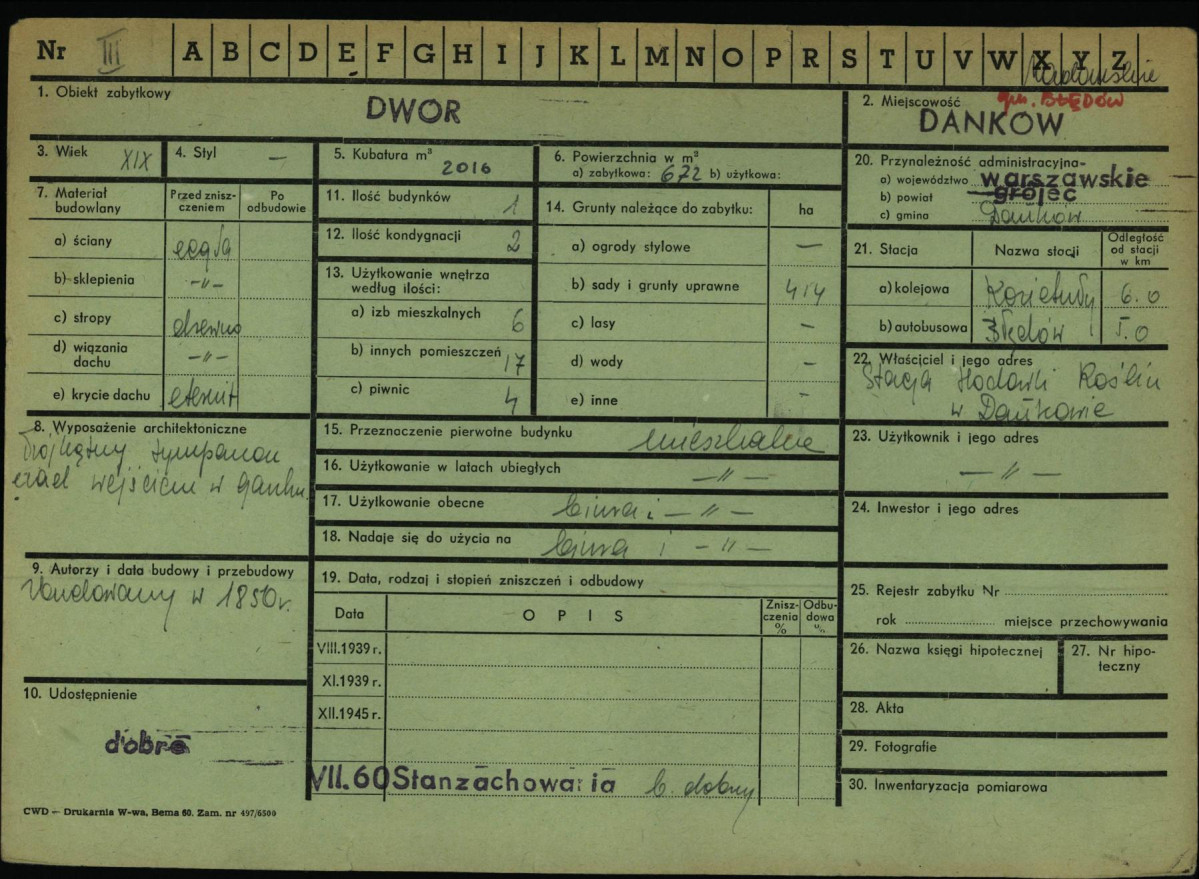 Nr III A B C D E F G H I J K L M N O P R S T U V W X Y Z
Radomskie
1. Obiekt zabytkowy
DWÓR
2. Miejscowość
gm. BŁĘDÓW
DAŃKÓW
3. Wiek XIX
4. Styl —
5. Kubatura m³
2016
6. Powierzchnia w m²
a) zabytkowa: 672 b) użytkowa:
7. Materiał budowlany
Przed znisz-
czeniem
Po
odbudowie
a) ściany cegła
b) sklepienia —„—
c) stropy drewno
d) wiązania
dachu —„—
e) krycie dachu eternit
8. Wyposażenie architektoniczne
Trójkątny tympanon
nad wejściem w ganku.
9. Autorzy i data budowy i przebudowy
w 1850 r.
10. Udostępnienie
dobre
11. Ilość budynków 1
12. Ilość kondygnacji 2
13. Użytkowanie wnętrza
według ilości:
a) izb mieszkalnych 6
b) innych pomieszczeń 17
c) piwnic 4
14. Grunty należące do zabytku: ha
a) ogrody stylowe —
b) sady i grunty uprawne 414
c) lasy —
d) wody —
e) inne —
15. Przeznaczenie pierwotne budynku mieszkalne
16. Użytkowanie w latach ubiegłych —„—
17. Użytkowanie obecne biura i —„—
18. Nadaje się do użycia na biura i —„—
19. Data, rodzaj i stopień zniszczeń i odbudowy
Data OPIS
Znisz-
czenia
%
Odbu-
dowa
%
VIII.1939 r.
XI.1939 r.
XII.1945 r.
VII.60 Stan zachowania b. dobry
20. Przynależność administracyjna-
a) województwo warszawskie
b) powiat grójec
c) gmina Dańków
21. Stacja Nazwa stacji
Odległość
od stacji
w km
a) kolejowa Kozietuły 6.0
b) autobusowa Błędów 5.0
22. Właściciel i jego adres
Stacja Hodowli Roślin
w Dańkowie
23. Użytkownik i jego adres
—„—
24. Inwestor i jego adres
25. Rejestr zabytku Nr
rok miejsce przechowywania
26. Nazwa księgi hipotecznej
27. Nr hipo-
teczny
28. Akta
29. Fotografie
30. Inwentaryzacja pomiarowa
CWD — Drukarnia W-wa, Bema 60. Zam. nr 497/6500